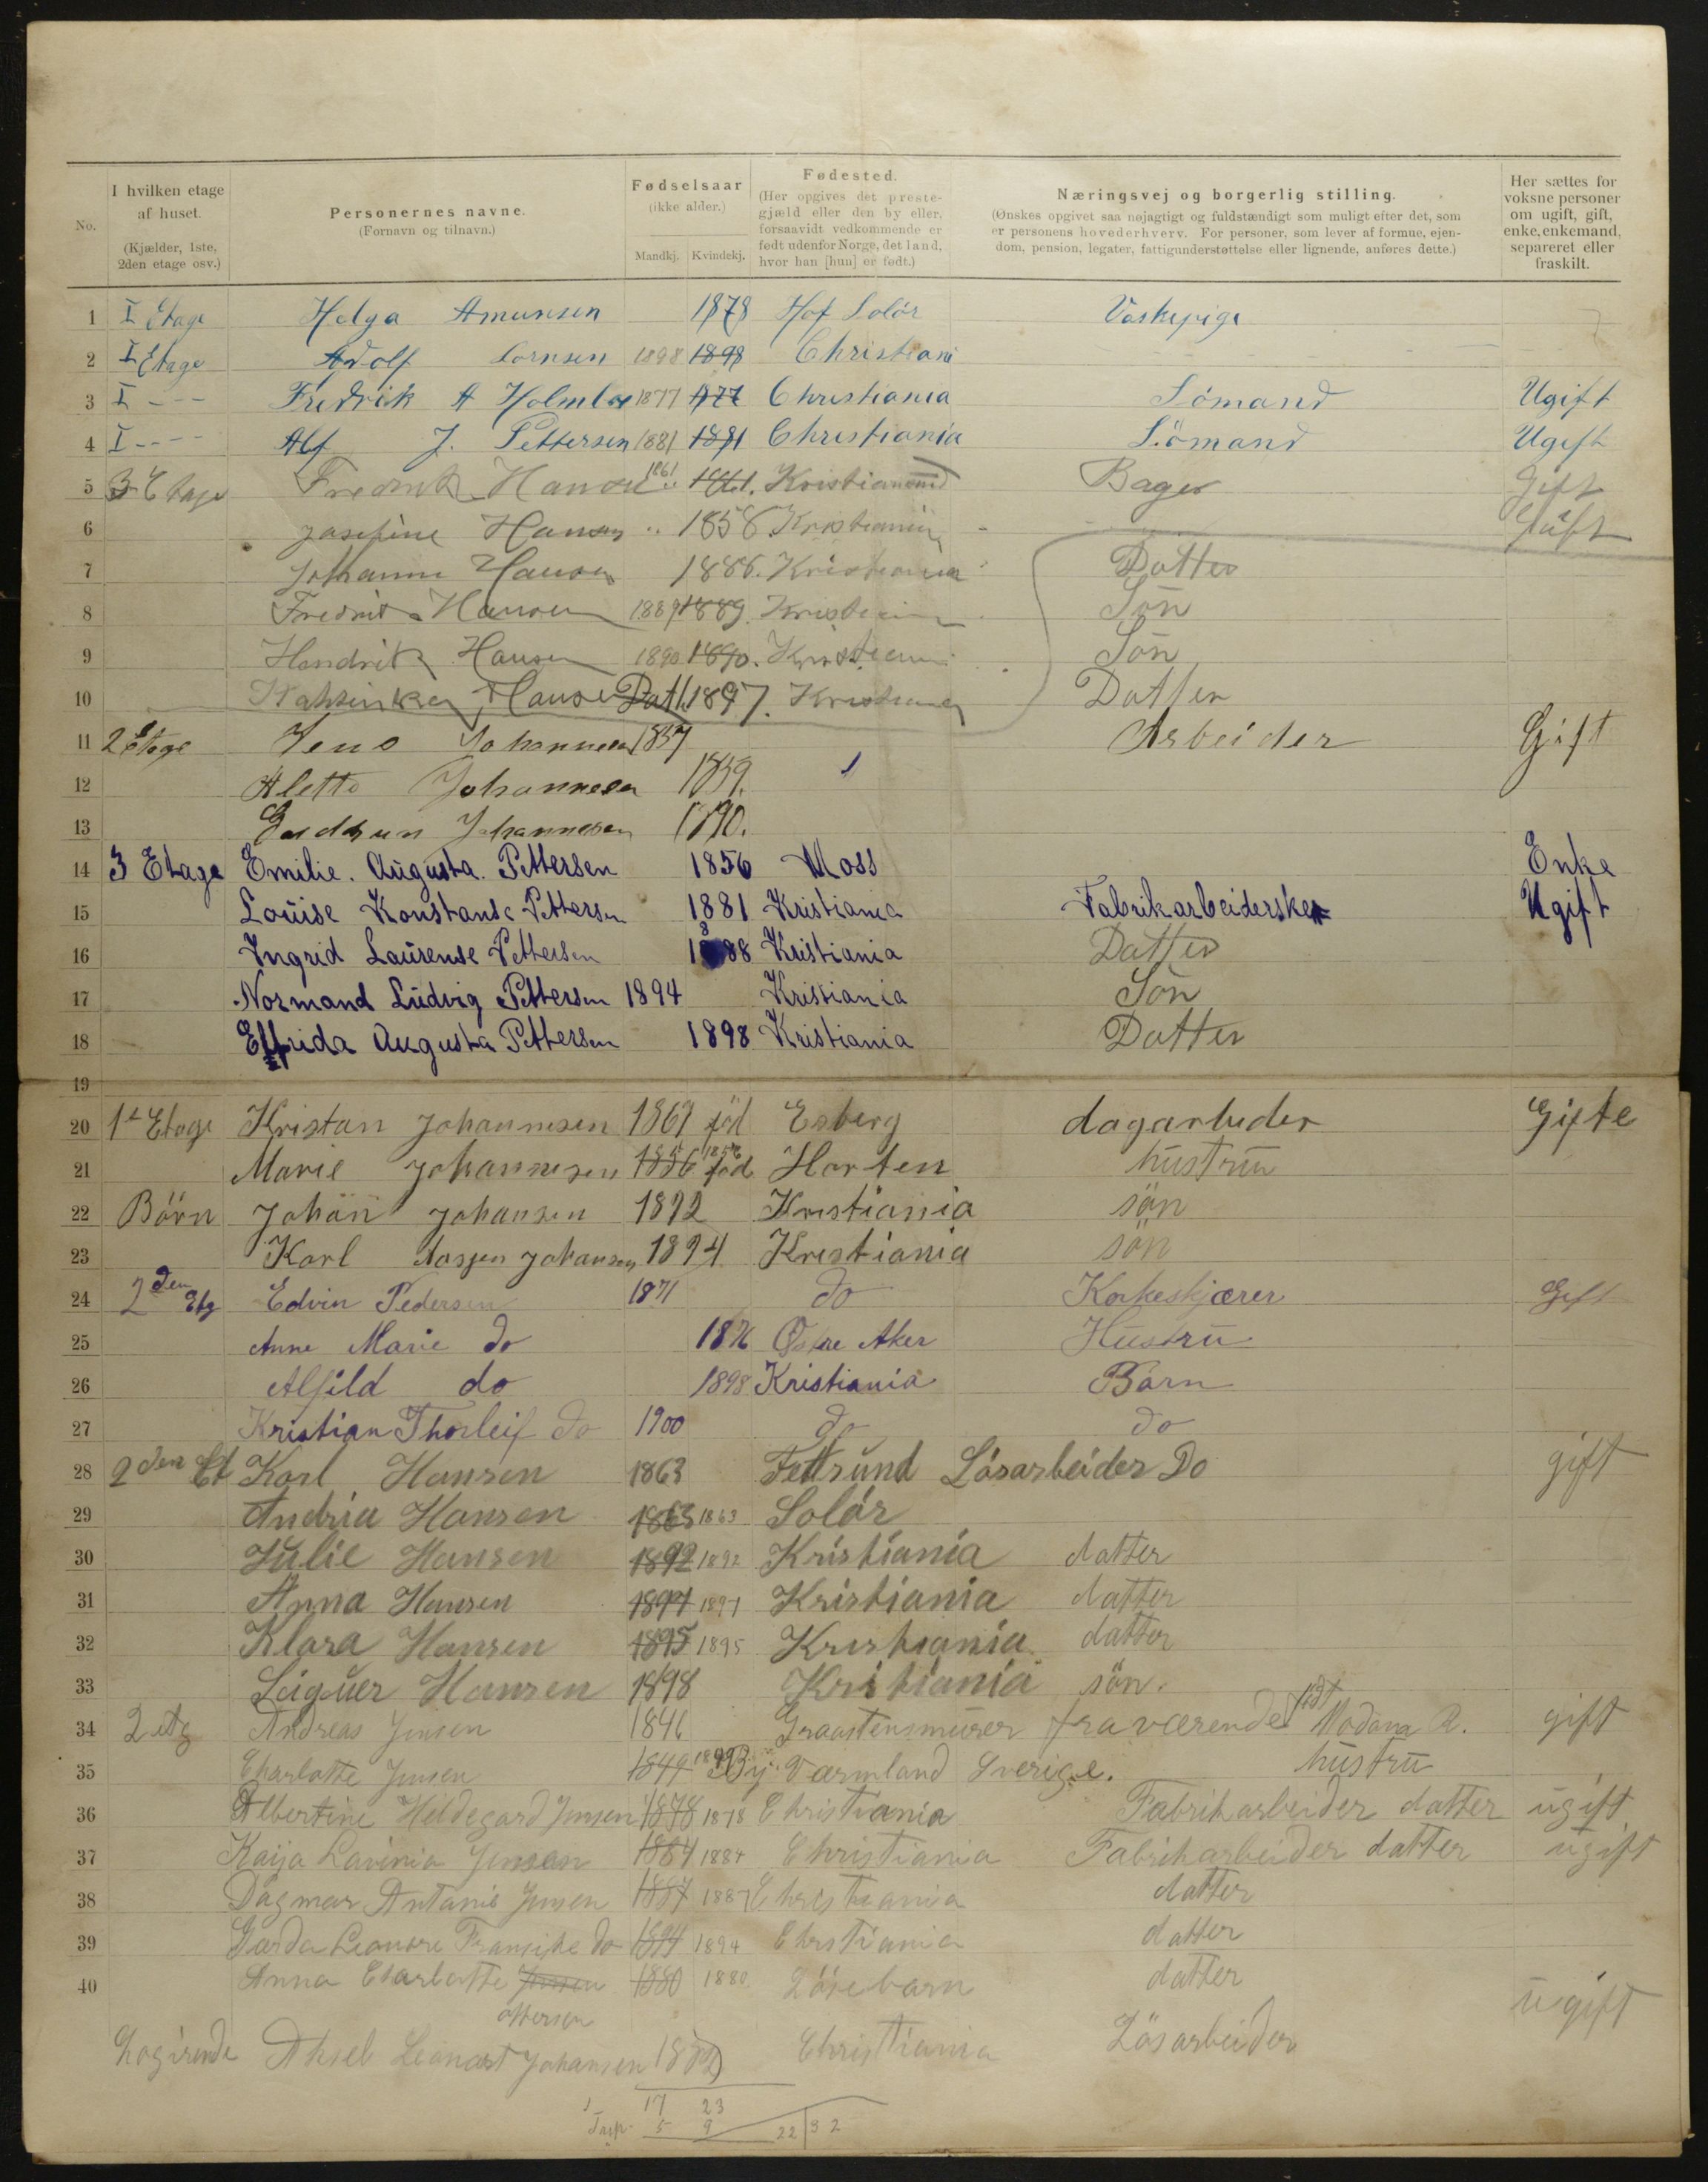 No. I hvilken etage af huset. (Kjælder, 1ste, 2den etage osv.) Personernes navne. (Fornavn og tilnavn.) Fødselsaar (ikke alder.) Mandkj. Kvindekj. Fødested. (Her opgives det prestegjæld eller den by eller, forsaavidt vedkommende er født udenfor Norge, det land, hvor han [hun] er født.) Næringsvej og borgerlig stilling. (Ønskes opgivet saa nøjagtigt og fuldstændigt som muligt efter det, som er personens hovederhverv. For personer, som lever af formue, ejendom, pension, legater, fattigunderstøttelse eller lignende, anføres dette.) Her sættes for voksne personer om ugift, gift, enke, enkemand, separeret eller fraskilt.
1 I Etage Helga Amunsen 1878 Hof Solør Vaskepige
2 I Etage Adolf 1898 1898 Christiani
3 I --- Fredrik A Holmboe 1877 1877 Christiania Sömand Ugift
4 I ---- Alf J. Pettersen 1881 1881 Christiania Sömand Ugift
5 3 Etage Fredrik Hansen 1861 1861. Bager Gift
6 Josefine Hansen 1858 Kristiania Gift
7 Johanne Hansen 1886. Kristiania Datter
8 Fredrik Hansen 1889 1889. Kristiania Sön
9 Hendrik Hansen 1890 1890. Kristiania Sön
10 Hansen Datt 1897. Kristiania Datter
11 2 Etage Jens Johannesen 1857 Arbeider Gift
12 Alette Johannesen 1859.
13 Gudrun Johannesen 1890.
14 3 Etage Emilie. Augusta. Pettersen 1856 Moss Enke
15 Louise Konstanse Pettersen 1881 Kristiania Fabrikarbeiderske Ugift
16 Ingrid Laurense Pettersen 1888 Kristiania Datter
17 Normand Ludvig Pettersen 1894 Kristiania Sön
18 Elfrida Augusta Pettersen 1898 Kristiania Datter
19
20 1st Etage Kristan Johannesen 1869 föd Esberg dagarbeider Gifte
21 Marie Johannesen 1856 1856 föd Horten hustru
22 Börn Johan Johansen 1892 Kristiania sön
23 Karl Johansen 1894 Kristiania sön
24 2den Etg Edvin Pedersen 1871 do Korkeskjærer Gift
25 Anne Marie do 1876 Østre Aker Hustru
26 Alfild do 1898 Kristiania Barn
27 Kristian Thorleif do 1900 do do
28 2den Et Karl Hansen 1863 Fetsund Lösarbeider Do gift
29 Andrea Hansen 1863 1863 Solör
30 Julie Hansen 1892 1892 Kristiania datter
31 Anna Hansen 1894 1894 Kristiania datter
32 Klara Hansen 1895 1895 Kristiania datter
33 Hansen 1898 Kristiania sön.
34 2 etg Andreas Jensen 1846 Graastensmurer fraværende födt gift
35 Charlotte Jensen 1849 1849 By. Værmland Sverige. hustru
36 Albertine Hildegard Jensen 1878 1878 Christiania Fabrikarbeider datter ugift
37 Kaija Lavinia Jensen 1884 1884 Christiania Fabrikarbeider datter ugift
38 Dagmar Antanie Jensen 1887 1887 Christiania datter
39 Gerda Leonore Fransiske do 1894 1894 Christiania datter
40 Anna Charlotte Jensen 1880 1880 Lösebarn datter ugift
ottersen
Logirende Aksel Leonart Johansen 1872 Christiania Lösarbeider
17 23
5 9 22 | 32